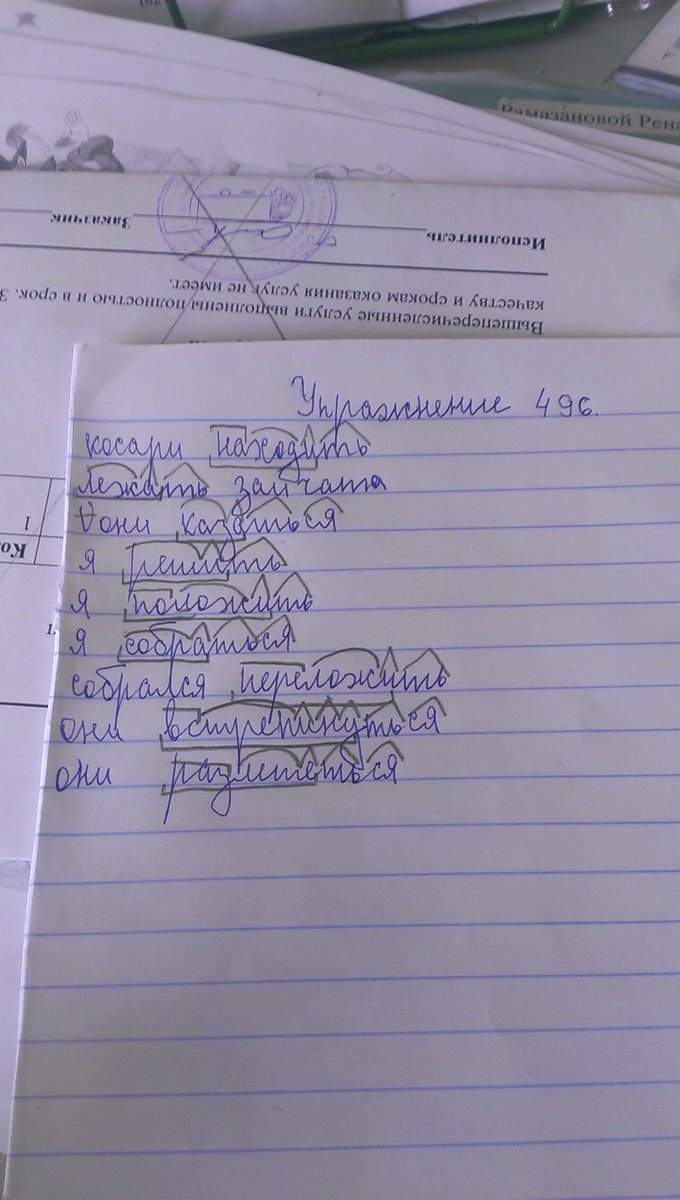 Рамазановой Рена
Исполнитель
Заказчик
Вышеперечисленные услуги выполнены полностью и в срок. З
качеству и срокам оказания услуг не имеет.
Упражнение 496.
косари находить
лежать зайчата
они казаться
я решить
я положить
я собраться
собрался переложить
они встрепинуться
они разлететься